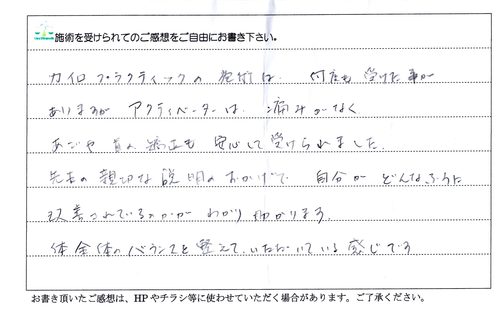 施術を受けられてのご感想をご自由にお書き下さい。
カイロプラクティックの施術は、何度も受けた事が
ありますが アクティベーターは、痛みがなく
あごや首の矯正も 安心して受けられました。
先生の親切な説明のおかげで 自分が どんなふうに
改善されているのかが わかり 助かります。
体全体のバランスを整えて いただいている感じです
お書き頂いたご感想は、HPやチラシ等に使わせていただく場合があります。ご了承ください。